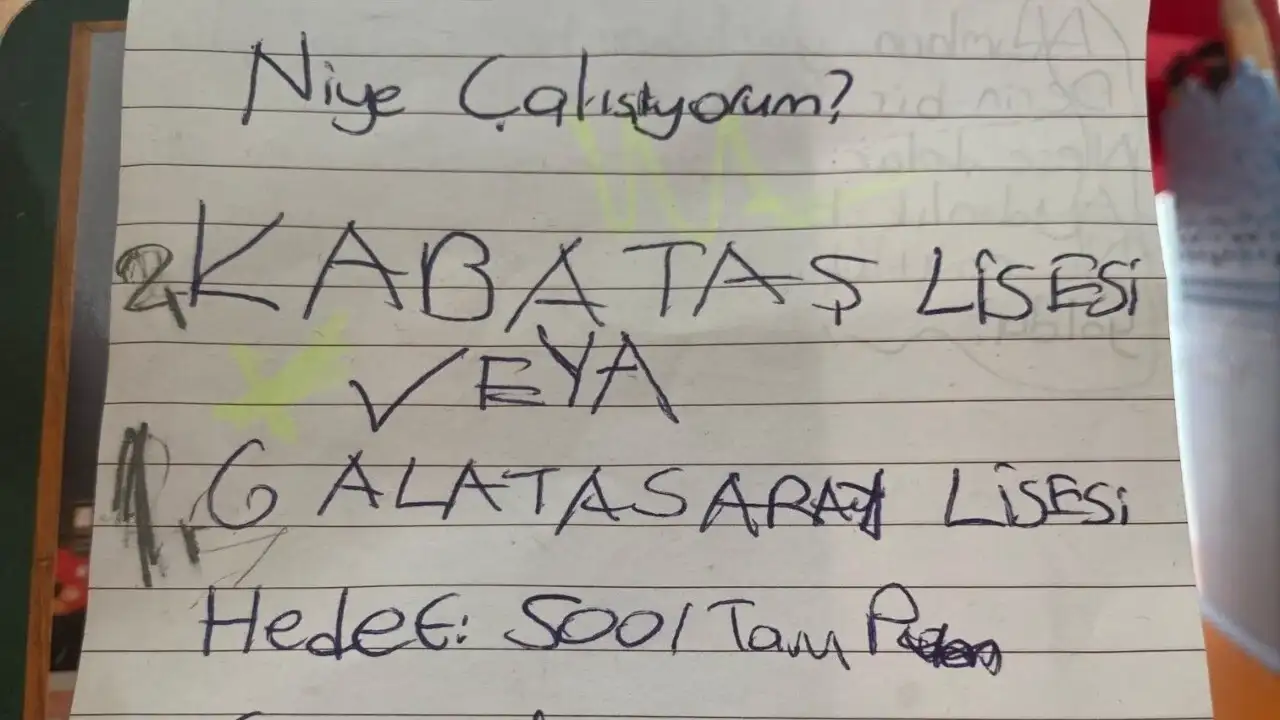 Niye Çalışıyorum?
2. KABATAŞ LİSESİ
VEYA
1. GALATASARAY LİSESİ
Hedef: 500/Tam